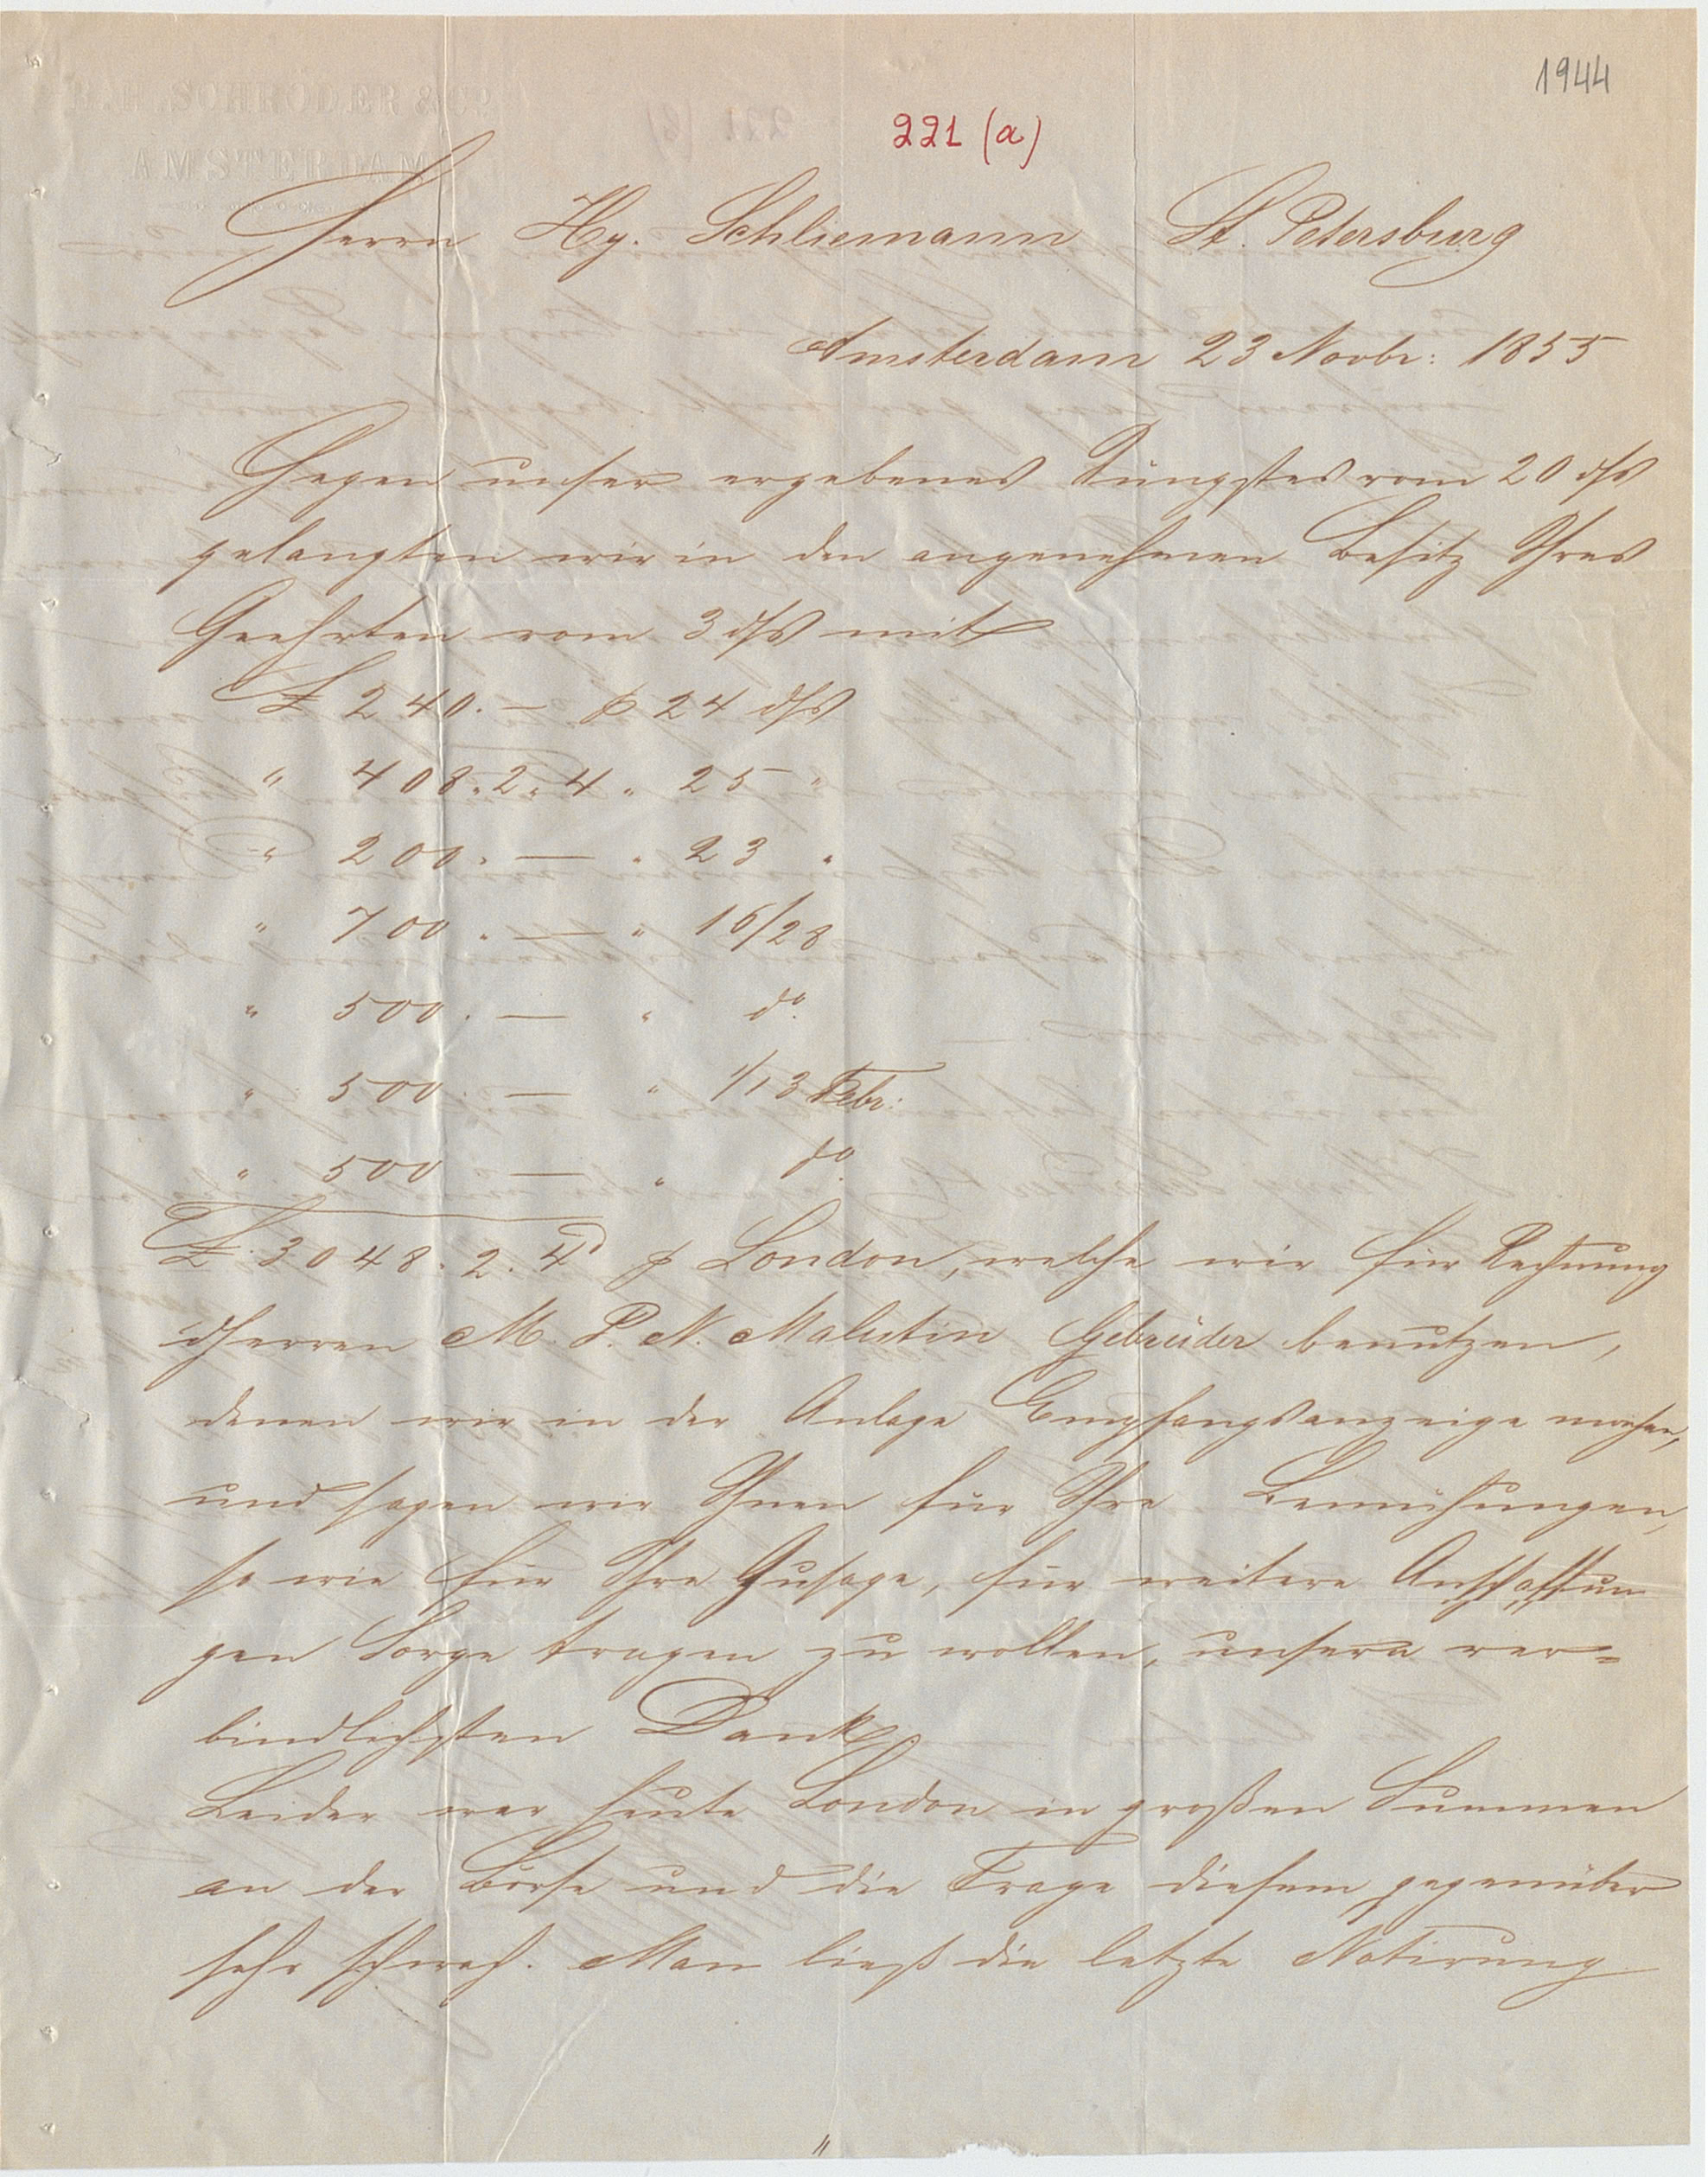 1944
221 (a)
B. H. SCHRÖDER & Co.
AMSTERDAM
Herrn Hy. Schliemann St. Petersburg
Amsterdam 23 Novbr: 1855
Gegen unser ergebenes Jüngstes vom 20 dſs
gelangten wir in den angenehmen Besitz Ihres
Geehrten vom 3 dſs mit
£ 240. — p 24 dſs
" 408. 2. 4 " 25 "
" 200. — " 23 "
" 700. — " 16/28
" 500. — " do.
" 500. — " 1/13 Febr:
" 500 — " do.
£ 3048. 2. 4 p London, welche wir für Rechnung
dHerren M. P. N. Malutin Gebrüder benutzen,
denen wir in der Anlage Empfangsanzeige machen,
und sagen wir Ihnen für Ihre Bemühungen,
so wie für Ihre Zusage, für weitere Anschaffun
gen Sorge tragen zu wollen, unsern ver=
bindlichsten Dank.
Leider war heute London in großen Summen
an der Börse und die Frage diesem gegenüber
sehr schwach. Man ließ die letzte Notirung